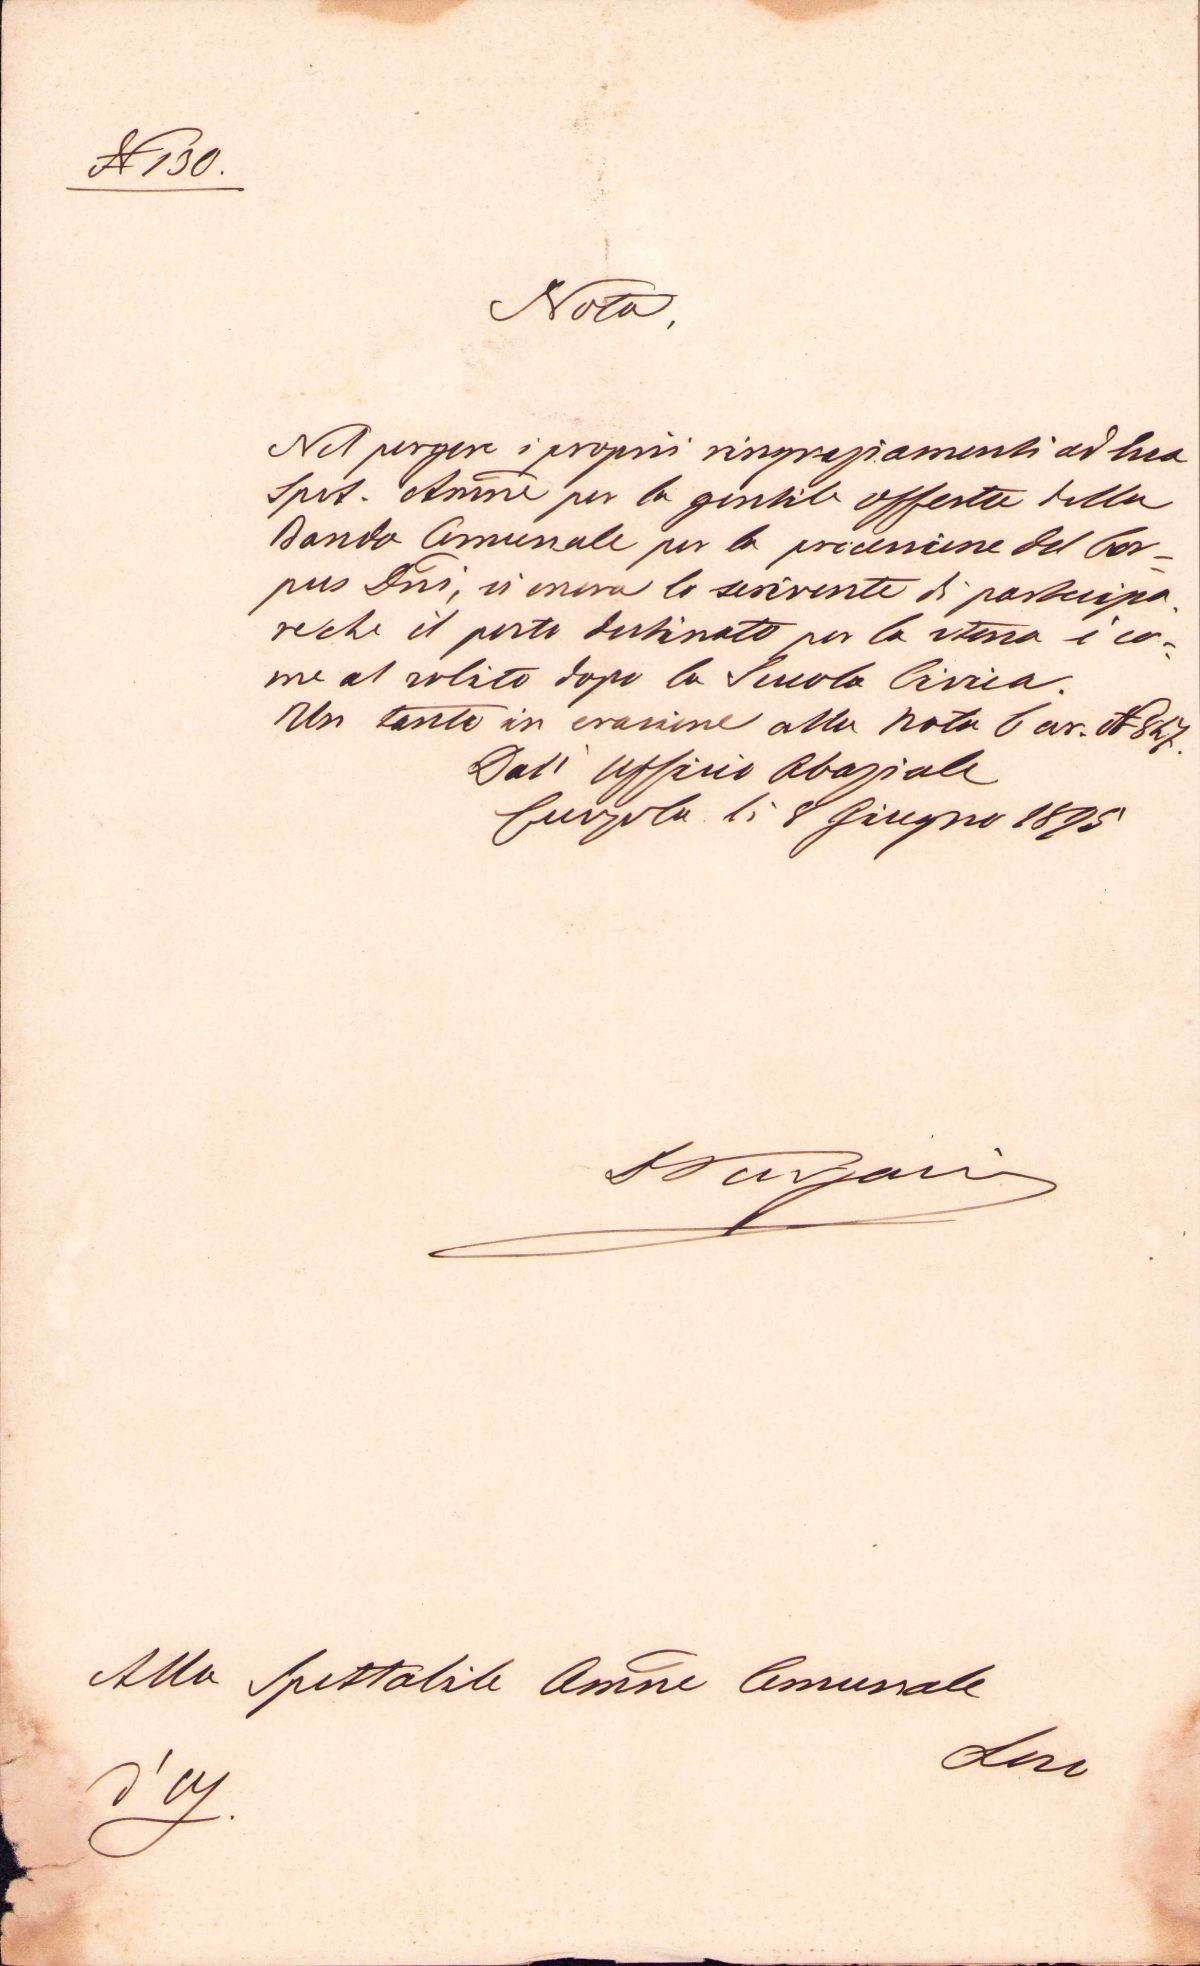 N 130.
Nota,
Nel porgere i proprii ringraziamenti ad
Spet. Amñe per la gentile offerta della
Banda Comunale per la processione del Cor-
pus Dñi, si onora lo scrivente di partecipa
re che il posto destinato per la stessa è co-
me al solito dopo la Scuola Civica.
Un tanto in evasione alla nota 6 cor. N 847.
Dall' Ufficio Abaziale
Curzola li 8 Giugno 1895
Alla Spettabile Amñe Comunale
Loco
d'Uf.